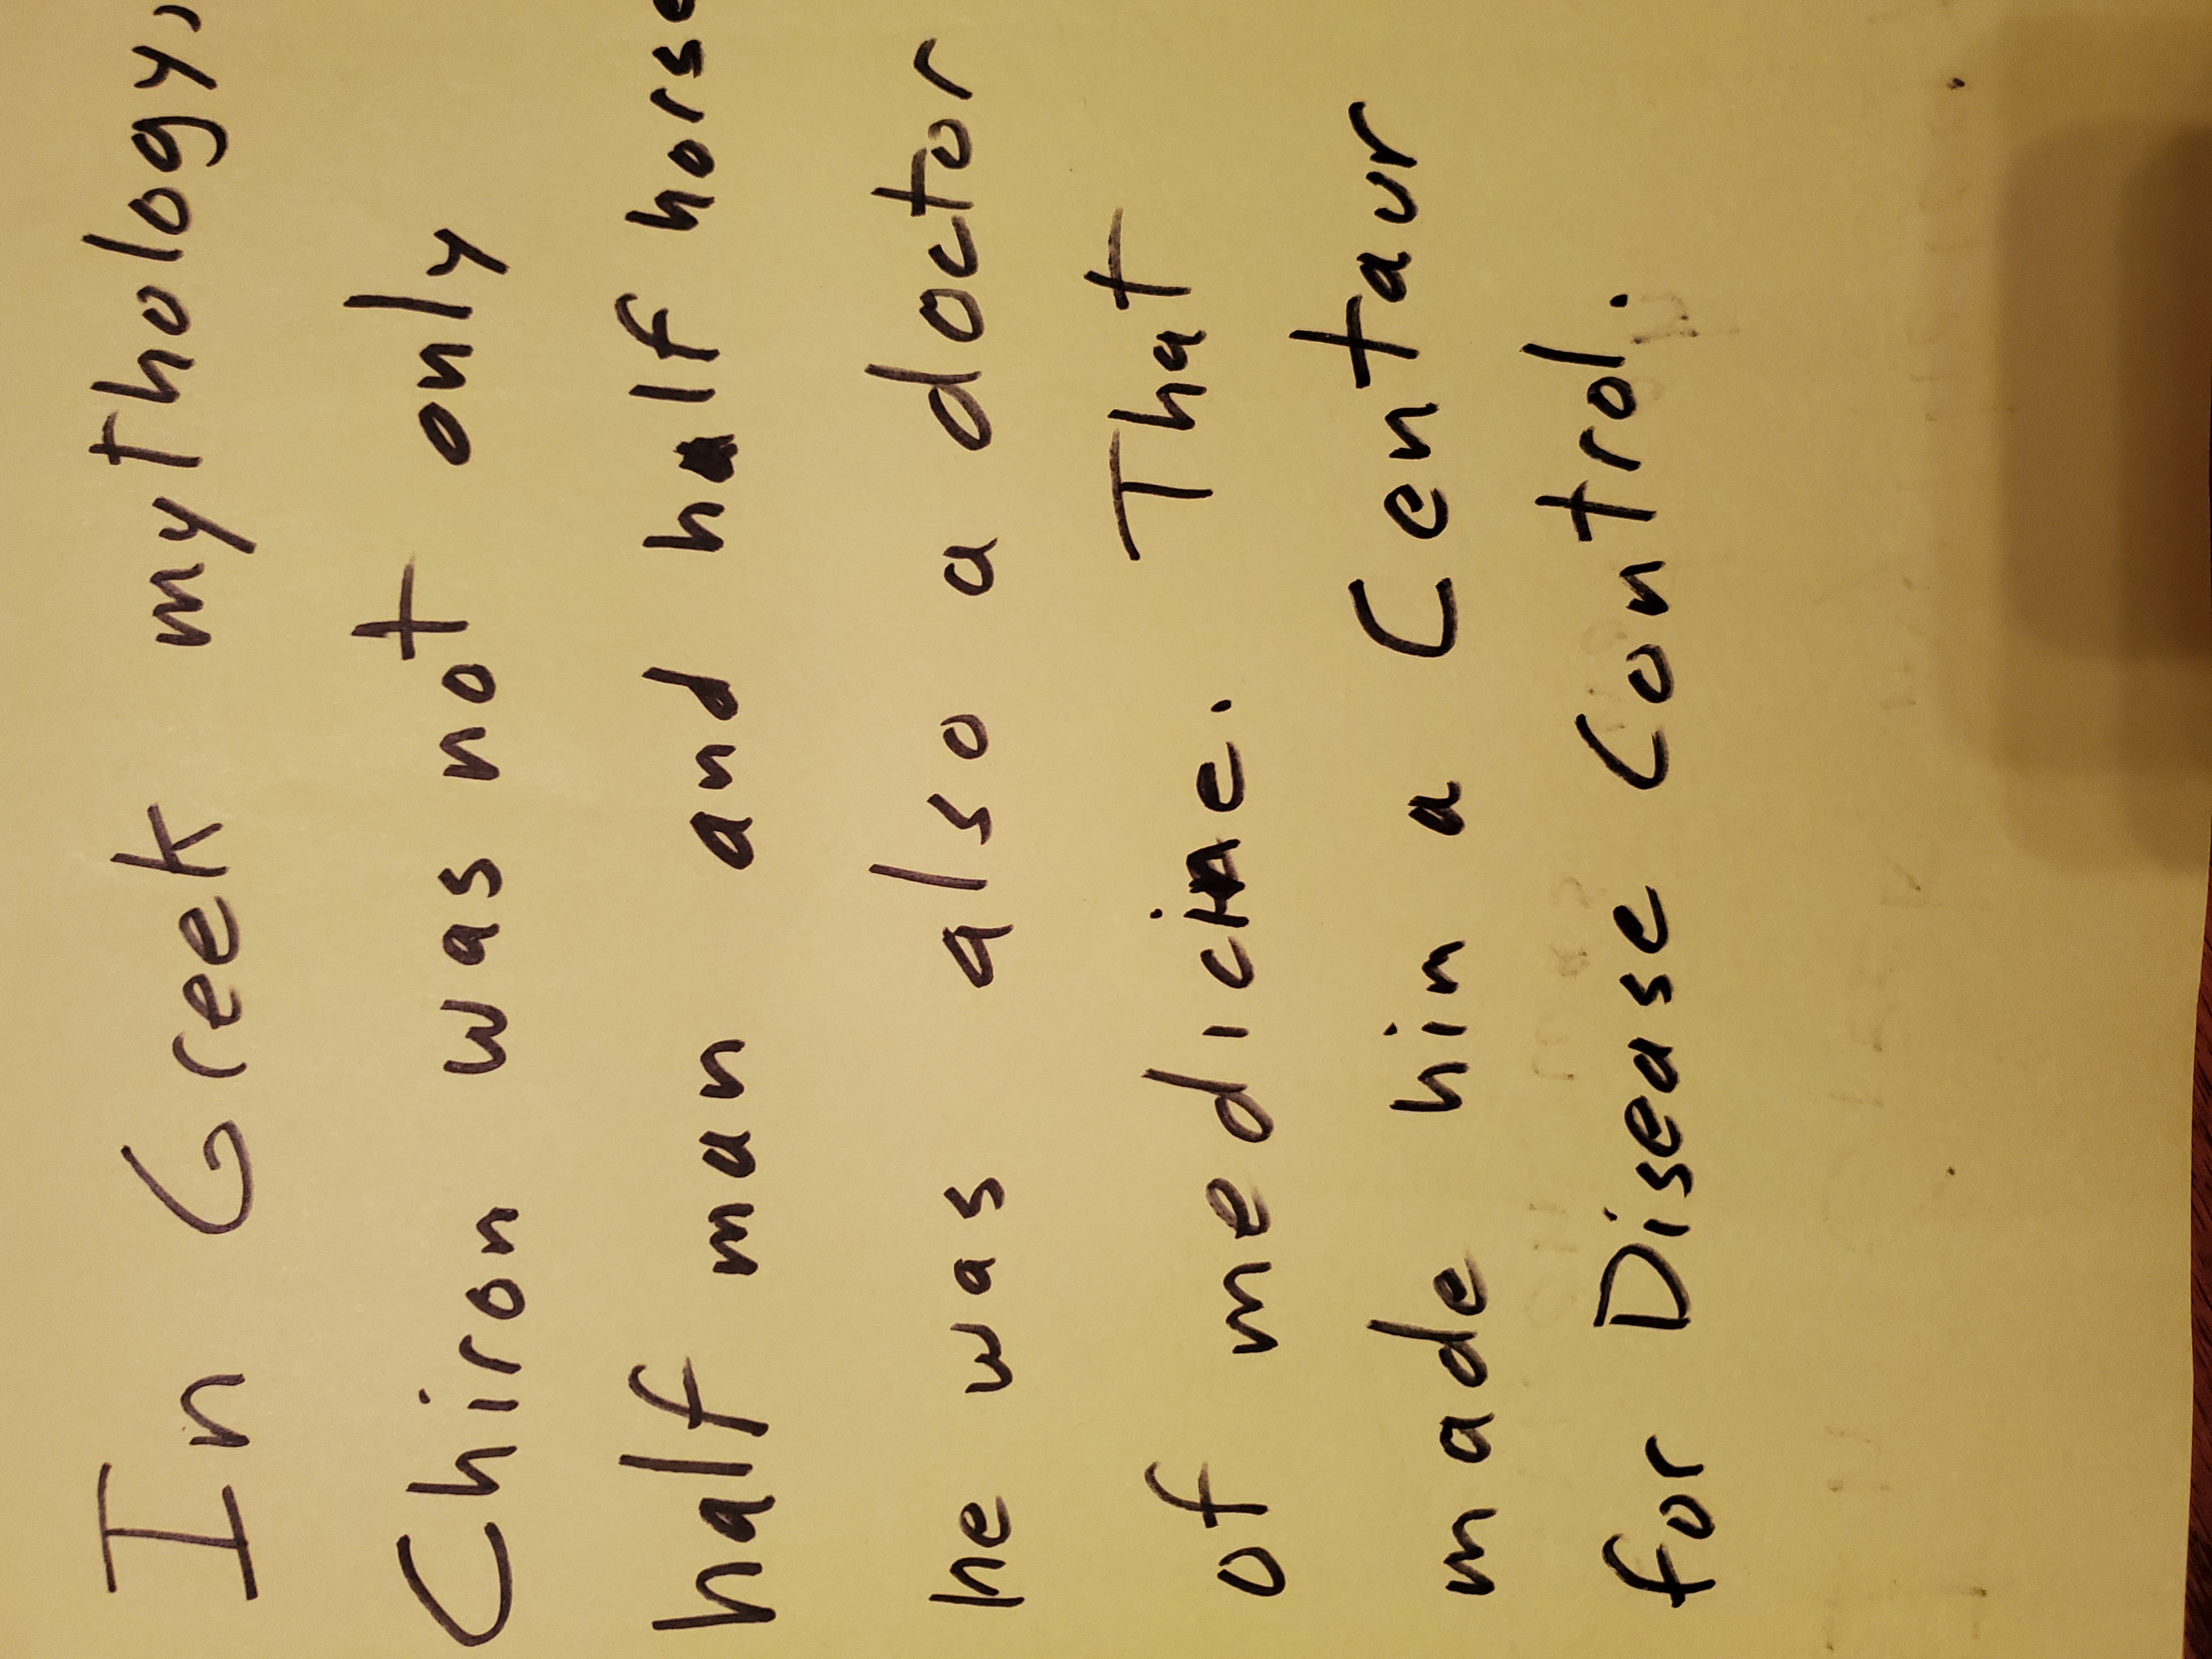 In Greek mythology,
Chiron was not only
half man and half horse
he was also a doctor
of medicine. That
made him a Centaur
for Disease Control.